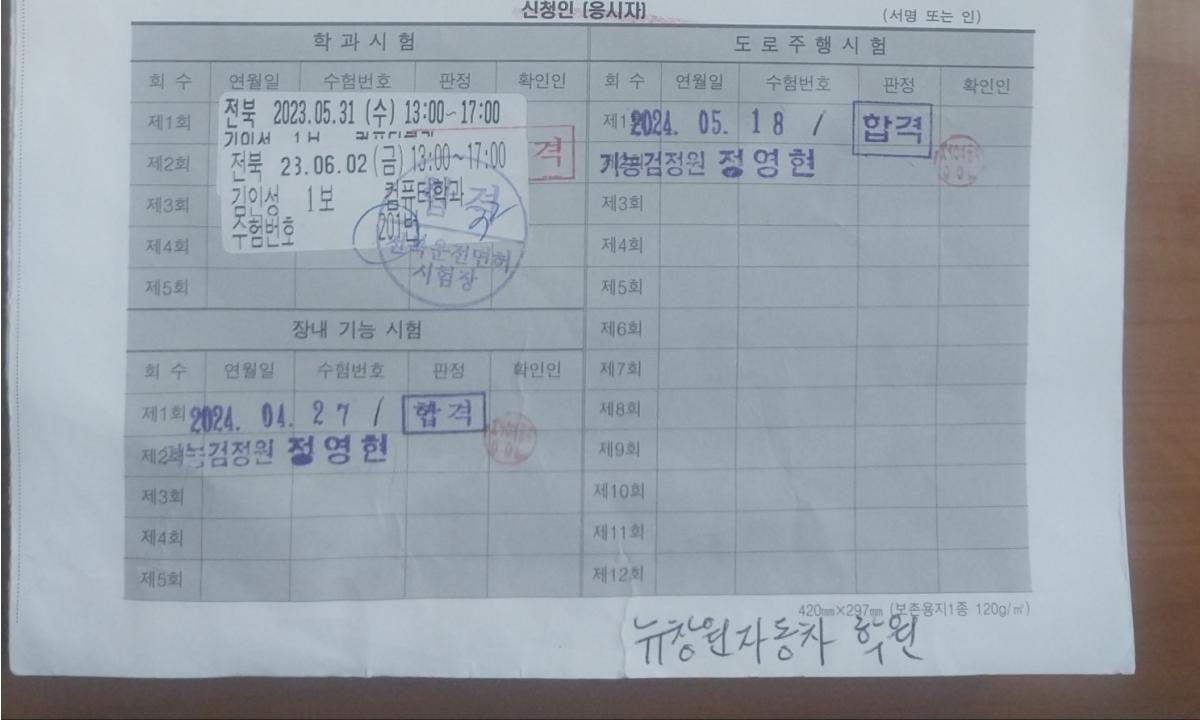 신청인 (응시자)
(서명 또는 인)
학 과 시 험
회 수 연월일 수험번호 판정 확인인
제1회
전북 2023.05.31 (수) 13:00~17:00
제2회
전북 23.06.02 (금) 13:00~17:00
격
김인성 1보 컴퓨터학과
수험번호 201번
합격
전북운전면허
시험장
제3회
제4회
제5회
장내 기능 시험
회 수 연월일 수험번호 판정 확인인
제1회 2024. 04. 27 / 합격
제2회 기능검정원 정영현
제3회
제4회
제5회
도 로 주 행 시 험
회 수 연월일 수험번호 판정 확인인
제1 2024. 05. 18 / 합격
기능검정원 정영현
제3회
제4회
제5회
제6회
제7회
제8회
제9회
제10회
제11회
제12회
420㎜×297㎜ (보존용지1종 120g/㎡)
뉴창원자동차 학원